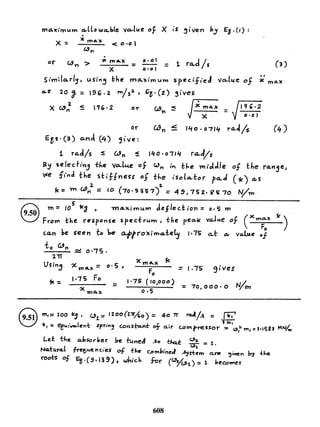 maximum allowable value of X is given by Eq.(1):
X = ẋ max / ωn < 0.01
or ωn > ẋ max / X = 0.01 / 0.01 = 1 rad/s (3)
Similarly, using the maximum specified value of ẍ max
as 20 g = 196.2 m/s², Eq.(2) gives
X ωn² ≤ 196.2 or ωn ≤ √(ẍ max / X) = √(196.2 / 0.01)
or ωn ≤ 140.0714 rad/s (4)
Eqs.(3) and (4) give:
1 rad/s ≤ ωn ≤ 140.0714 rad/s
By selecting the value of ωn in the middle of the range,
we find the stiffness of the isolator pad (k) as
k = m ωn² = 10 (70.5357)² = 49,752.8570 N/m
9.50 m = 10⁵ kg, maximum deflection = 0.5 m
From the response spectrum, the peak value of (x max k / F₀)
can be seen to be approximately 1.75 at a value of
t₀ ωn / 2π ≈ 0.75.
Using x max = 0.5, x max k / F₀ = 1.75 gives
k = 1.75 F₀ / x max = 1.75 (10,000) / 0.5 = 70,000.0 N/m
9.51 m₁ = 100 kg, ω₂ = 1200(2π/60) = 40 π rad/s = √(k₁/m₁)
k₁ = equivalent spring constant of air compressor = ω₁² m₁ =
Let the absorber be tuned so that ω₂/ω₁ = 1.
Natural frequencies of the combined system are given by the
roots of Eq.(9.139), which for (ω₂/ω₁) = 1 becomes
608